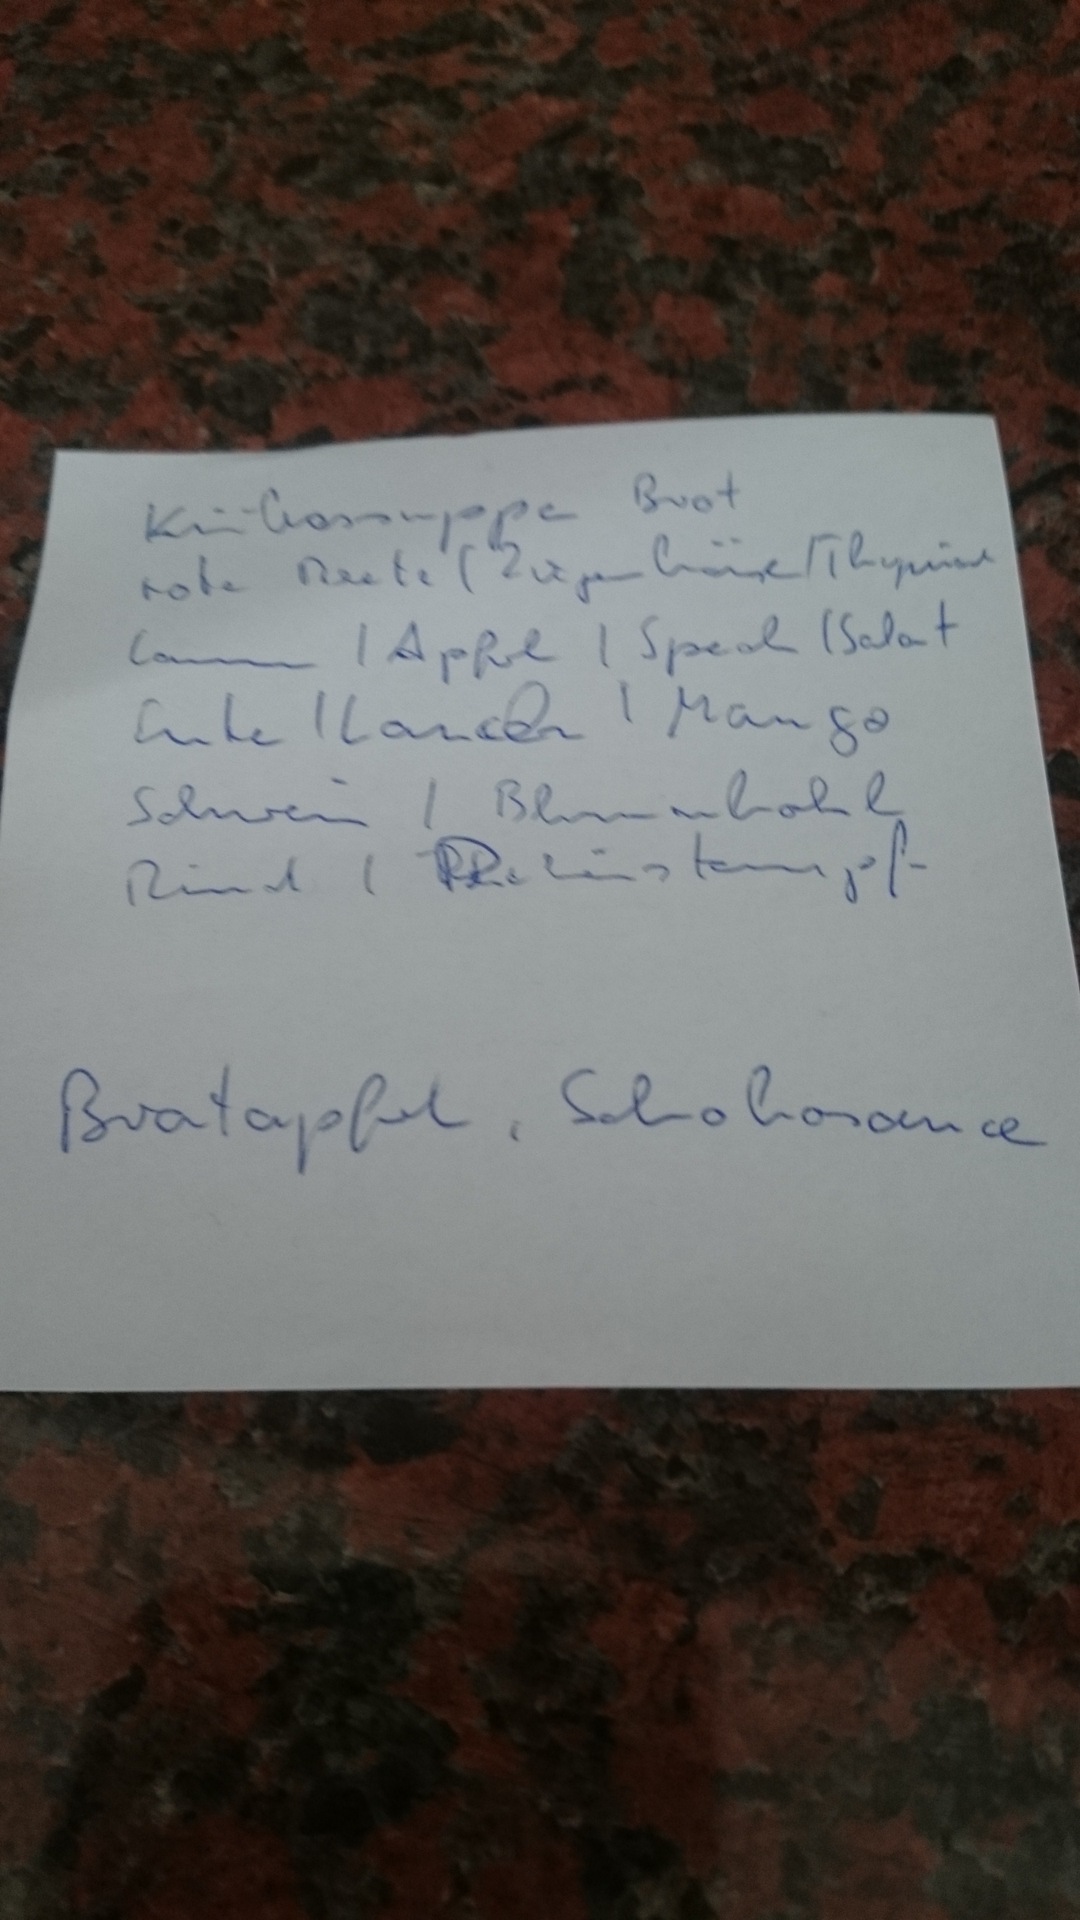 Kürbissuppe Brot
rote Beete | Ziegenkäse | Thymian
Lamm | Apfel | Speck | Salat
Ente | Lauch | Mango
Schwein | Blumenkohl
Rind |
Bratapfel, Schokosauce